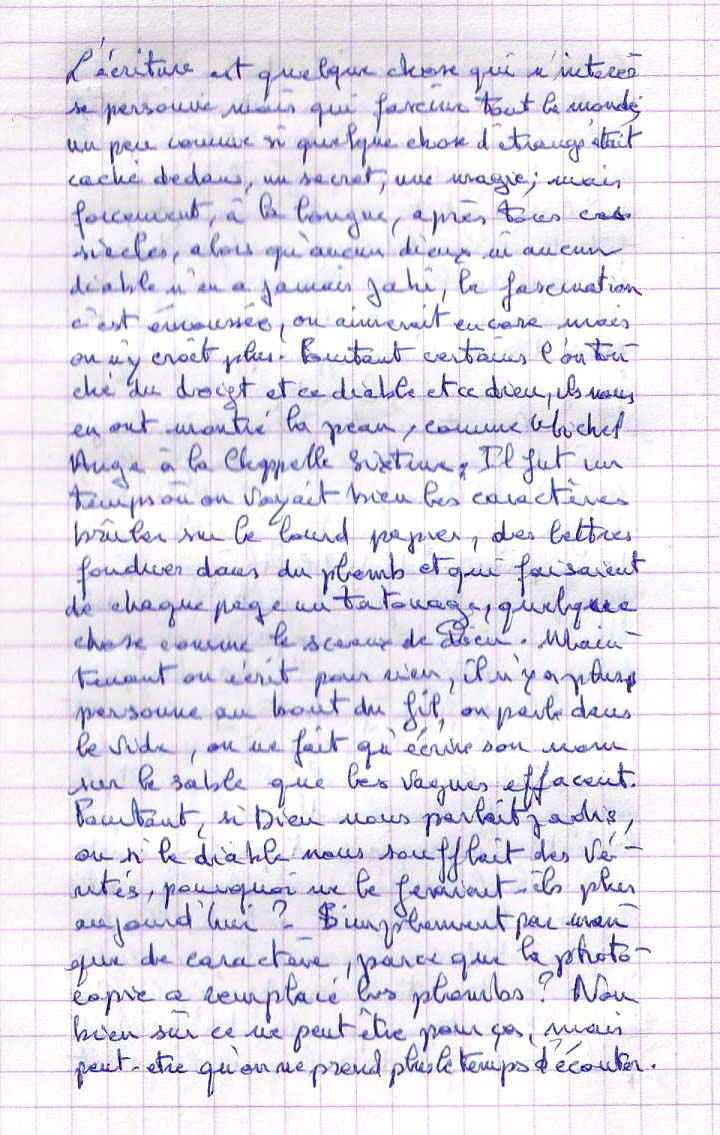 L'écriture est quelque chose qui n'intéres
se personne mais qui fascine tout le monde,
un peu comme si quelque chose d'étrange était
caché dedans, un secret, une magie; mais
forcément, à la longue, après tous ces
siècles, alors qu'aucun dieux ni aucun
diable n'en a jamais jahi, la fascination
c'est émoussée, on aimerait encore mais
on n'y croit plus. Pourtant certains l'ont tou
ché du doigt et ce diable et ce dieu, ils nous
en ont montré la peau, comme Michel
Ange à la Chappelle Sixtine. Il fut un
temps où on voyait bien les caractères
brûler sur le lourd papier, des lettres
fondues dans du plomb et qui faisaient
de chaque page un tatouage, quelque
chose comme le sceaux de Dieu. Main-
tenant on écrit pour rien, il n'y a plus
personne au bout du fil, on parle dans
le vide, on ne fait qu'écrire son nom
sur le sable que les vagues effacent.
Pourtant, si Dieu nous parlait jadis,
ou si le diable nous soufflait des vé-
rités, pourquoi ne le feraient-ils plus
aujourd'hui ? Simplement par man
que de caractère, parce que la photo-
copie a remplacé les plombs ? Non
bien sûr ce ne peut être pour ça, mais
peut-etre qu'on ne prend plus le temps d'écouter.